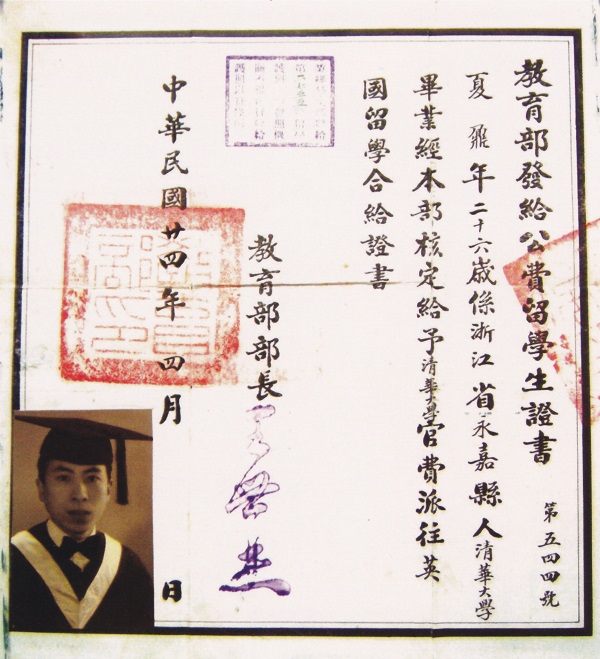 教育部發給公費留學生證書
第五四四號
夏鼐年二十六歲係浙江省永嘉縣人清華大學
畢業經本部核定給予清華大學官費派往英
國留學合給證書
教育部部長
中華民國廿四年四月
日